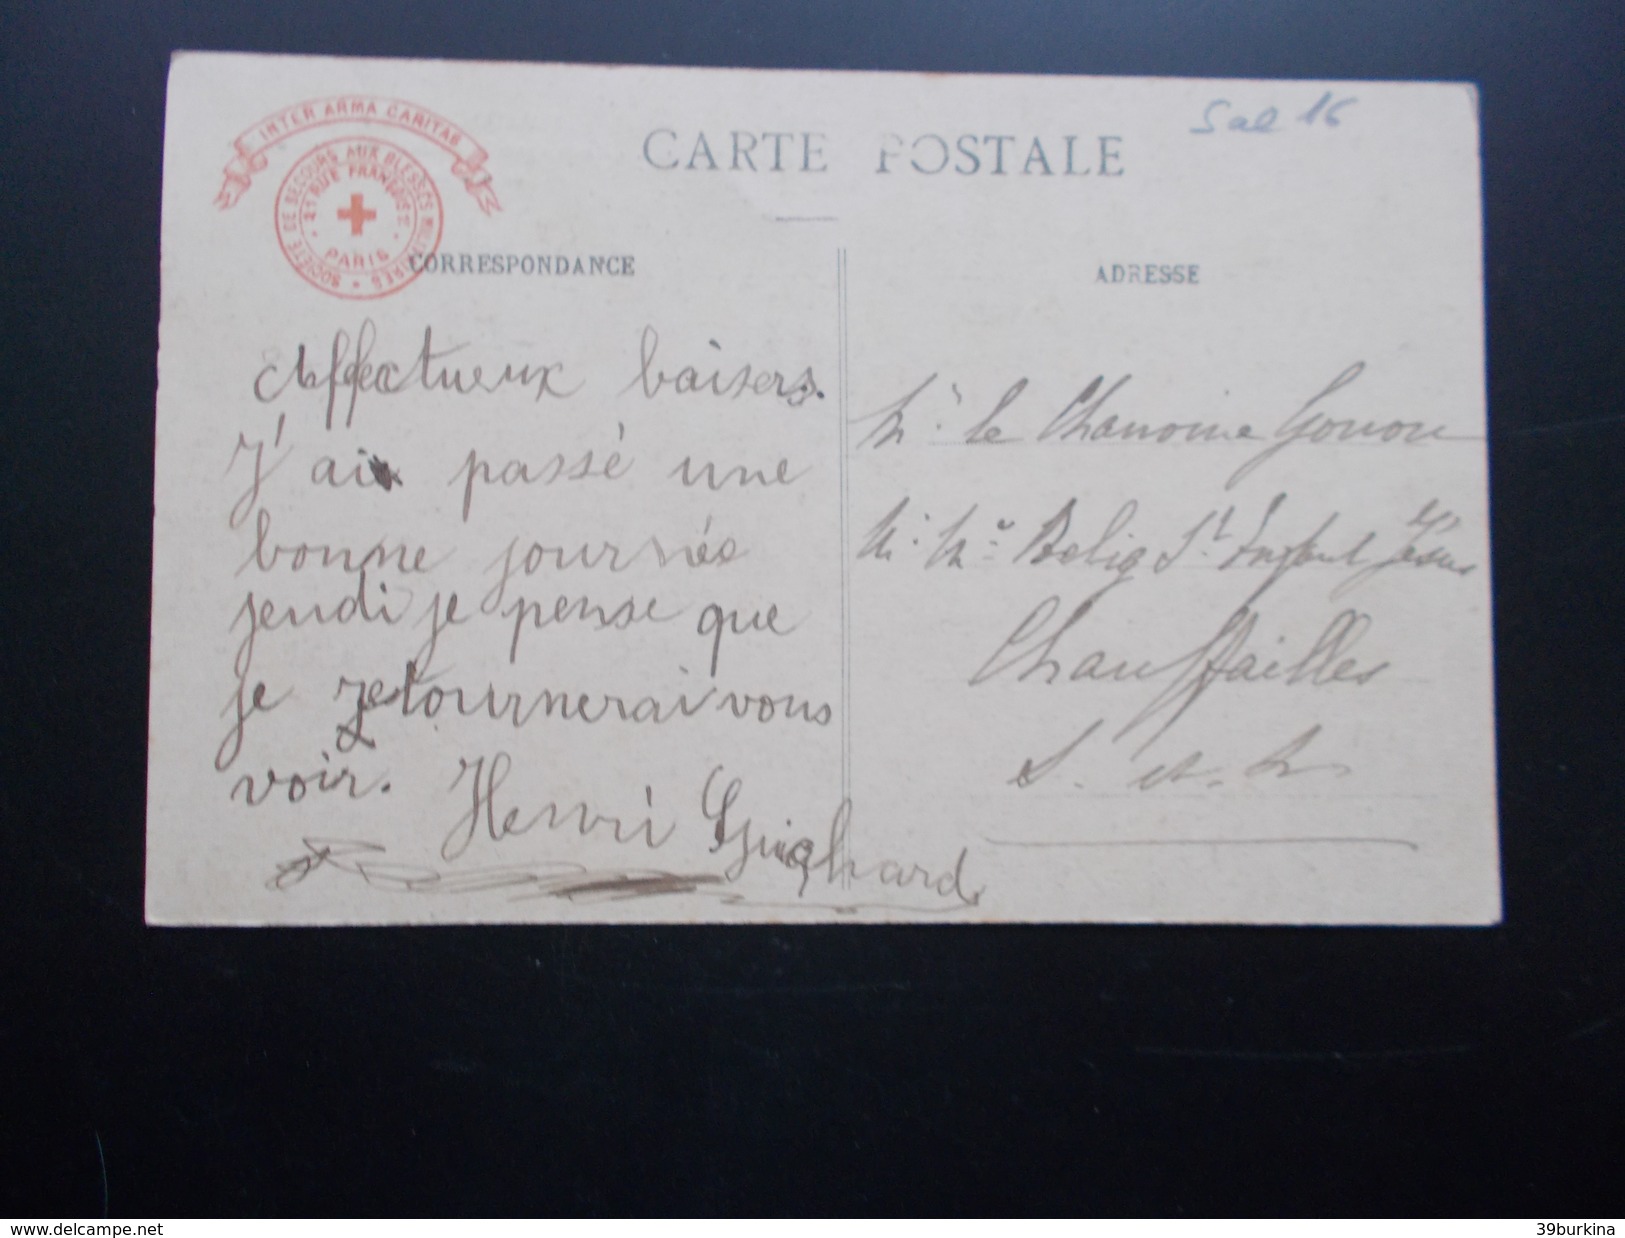 INTER ARMA CARITAS
SOCIÉTÉ DE SECOURS AUX BLESSÉS MILITAIRES
21 RUE FRANÇOIS 1er
PARIS
Sal 16
CARTE POSTALE
CORRESPONDANCE
ADRESSE
Affectueux baisers.
J'ai passé une
bonne journée
jeudi je pense que
je retournerai vous
voir.
Henri Guichard
Mr le Chanoine Gonon
Relig St Enfant Jésus
Chauffailles
S. et L.
www.delcampe.net
39burkina